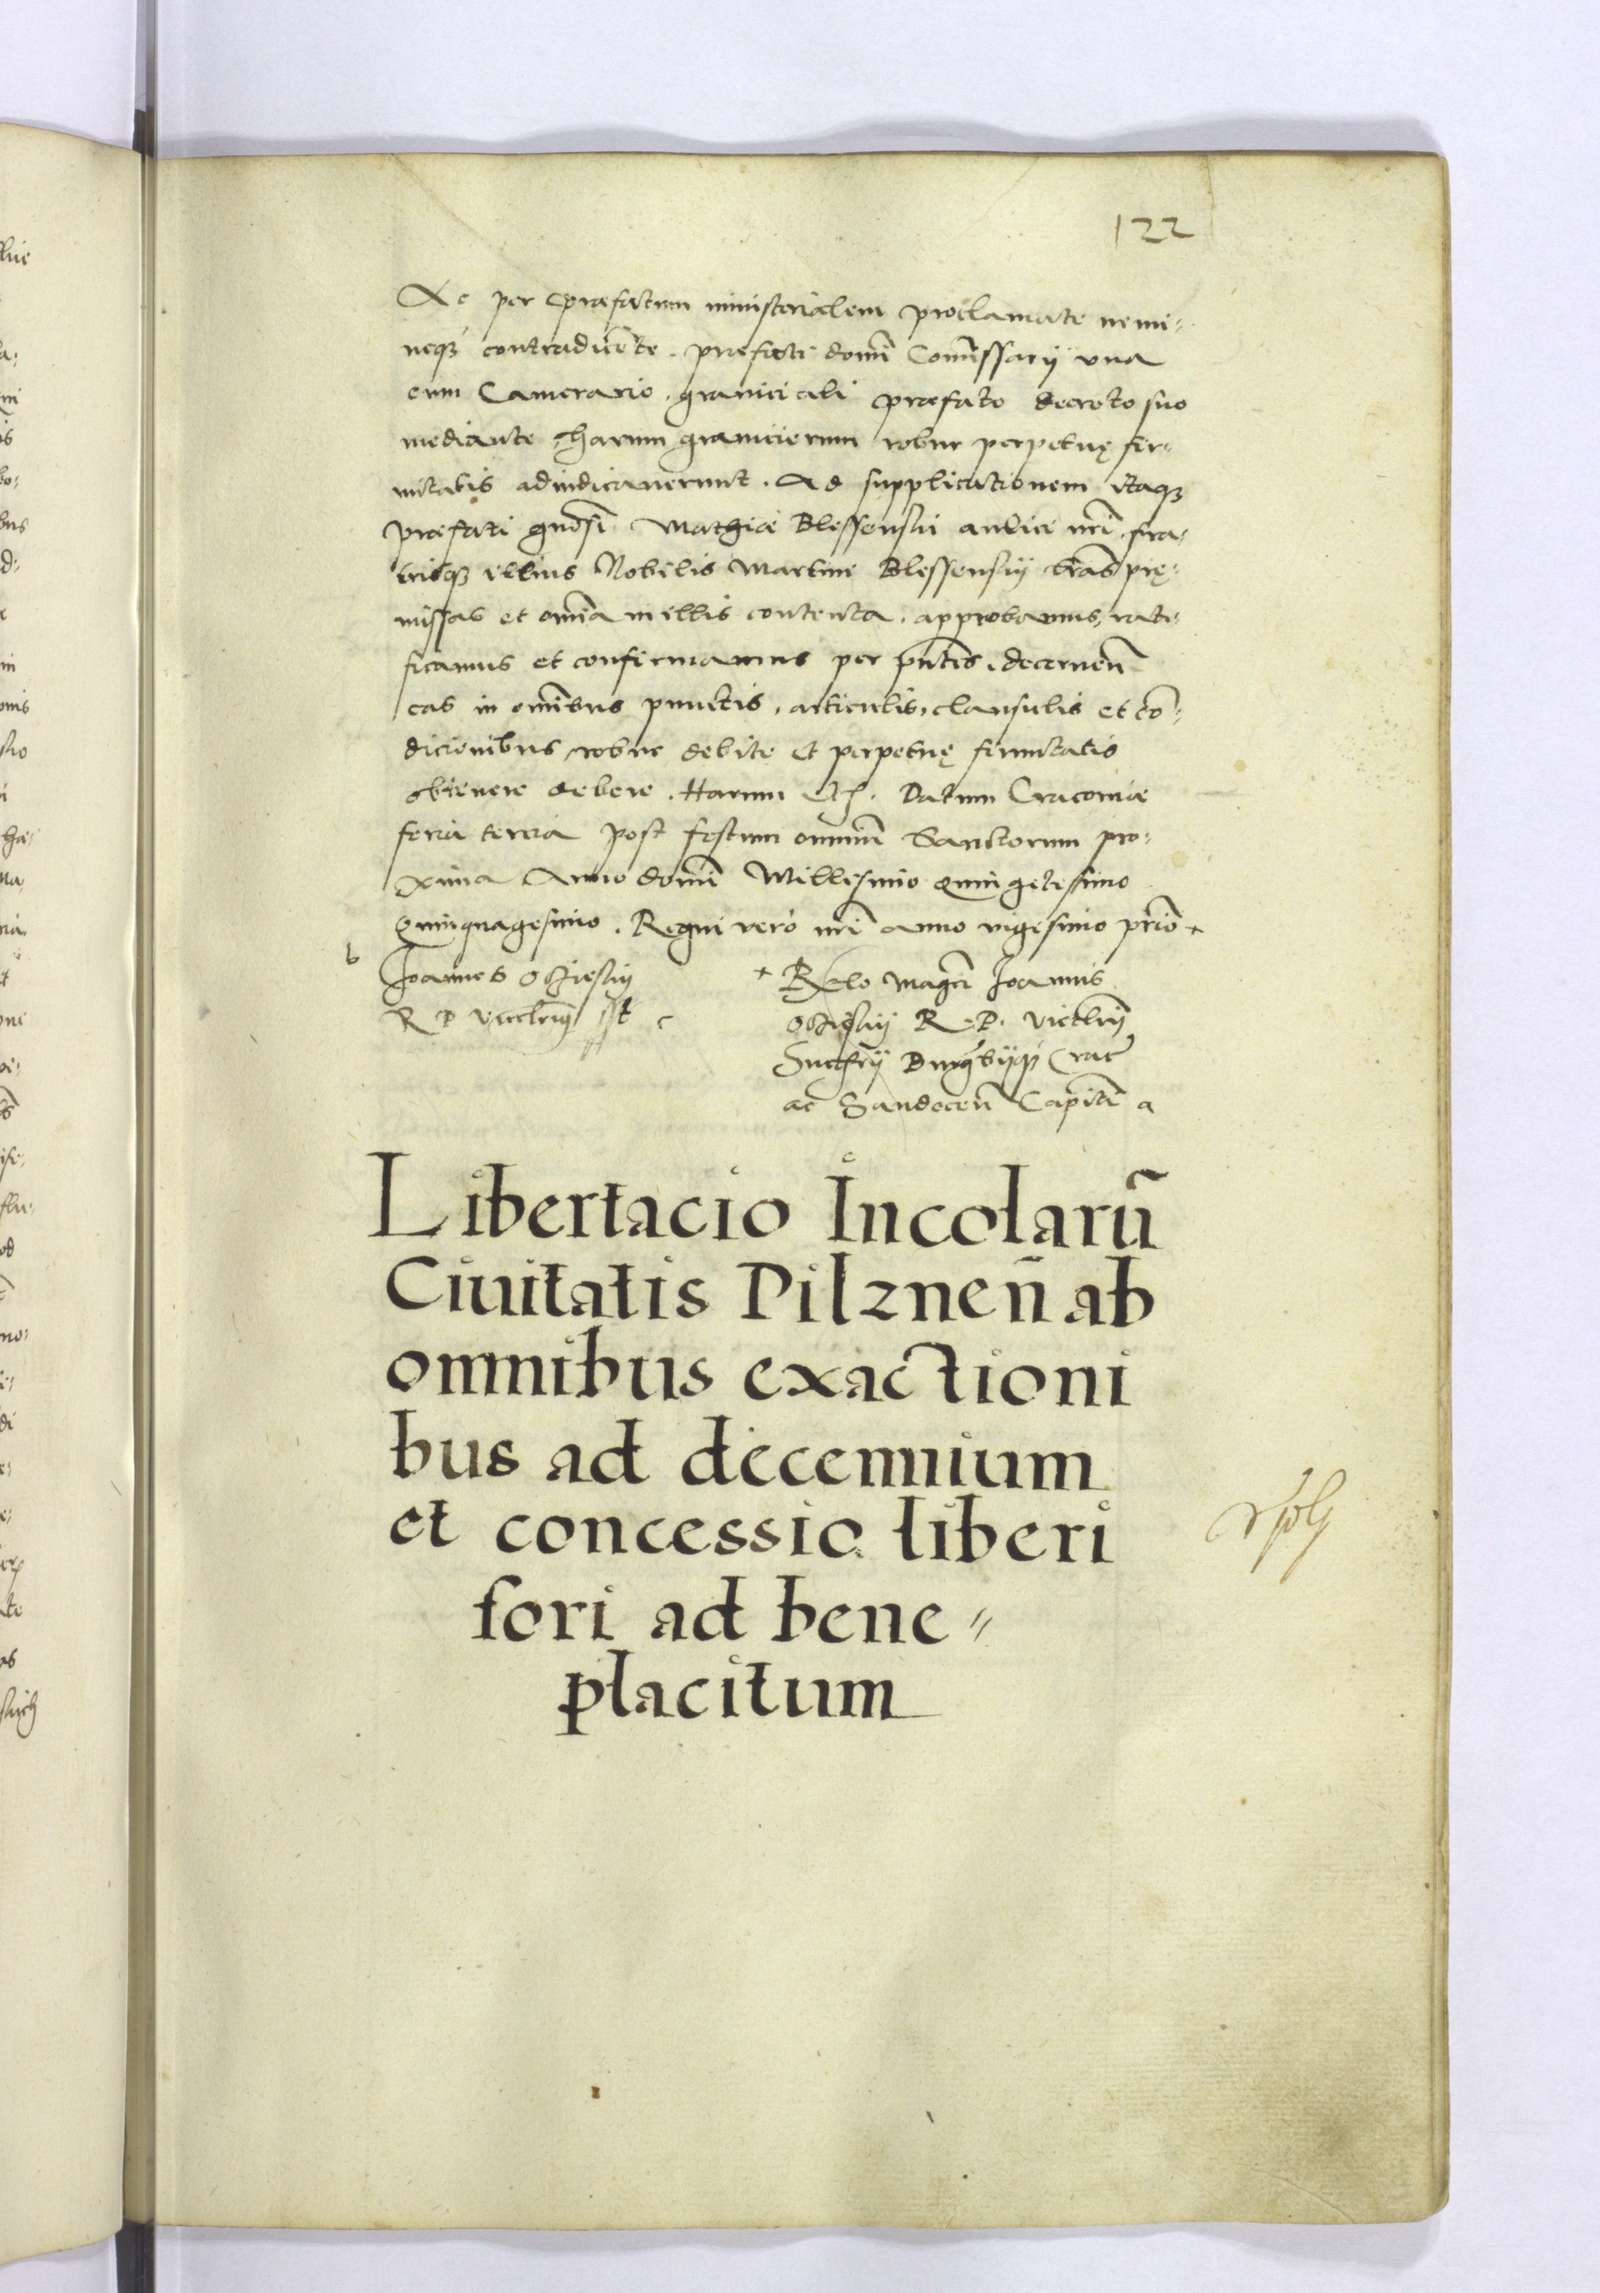 122
Ac per præfatum ministerialem proclamate nemi-
neq3 contradicẽte. præfati domĩ Comissarij vna
cum Camerario granicicali præfato decreto suo
mediante harum granicierum robur perpetuę fir-
mitatis adiudicauerunt. Ad supplicationem itaq3
præfati gnõsi Mathiæ Blessensky aulici nrĩ fra-
trisq3 illius Nobilis Martini Blessenskij lrãs prę-
missas et omĩa in illis contenta. approbamus, rati-
ficamus et confirmamus per pñtes. decerneñ
eas in omĩbus punctis, articulis, clausulis et cõ-
dicionibus robur debite et perpetuę firmitatis
obtinere debere. Harum
Datum Cracoviæ
feria tercia post festum omniũ Sanctorum pro-
xima Anno domĩ Millesimo quingẽtessimo
quinquagesimo. Regni vero nrĩ anno vigesimo prĩo +
Joannes Oczieskij
R P Vicecancell sst
+ Relo Magci Joannis
Oczieskij R. P. Vicecancell
Succamerarij Cracoviensis
ac Sandeceñ Capitã
Libertacio Incolarũ
Ciuitatis Pilzneñ ab
omnibus exactioni
bus ad decennium
et concessio liberi
fori ad bene=
placitum